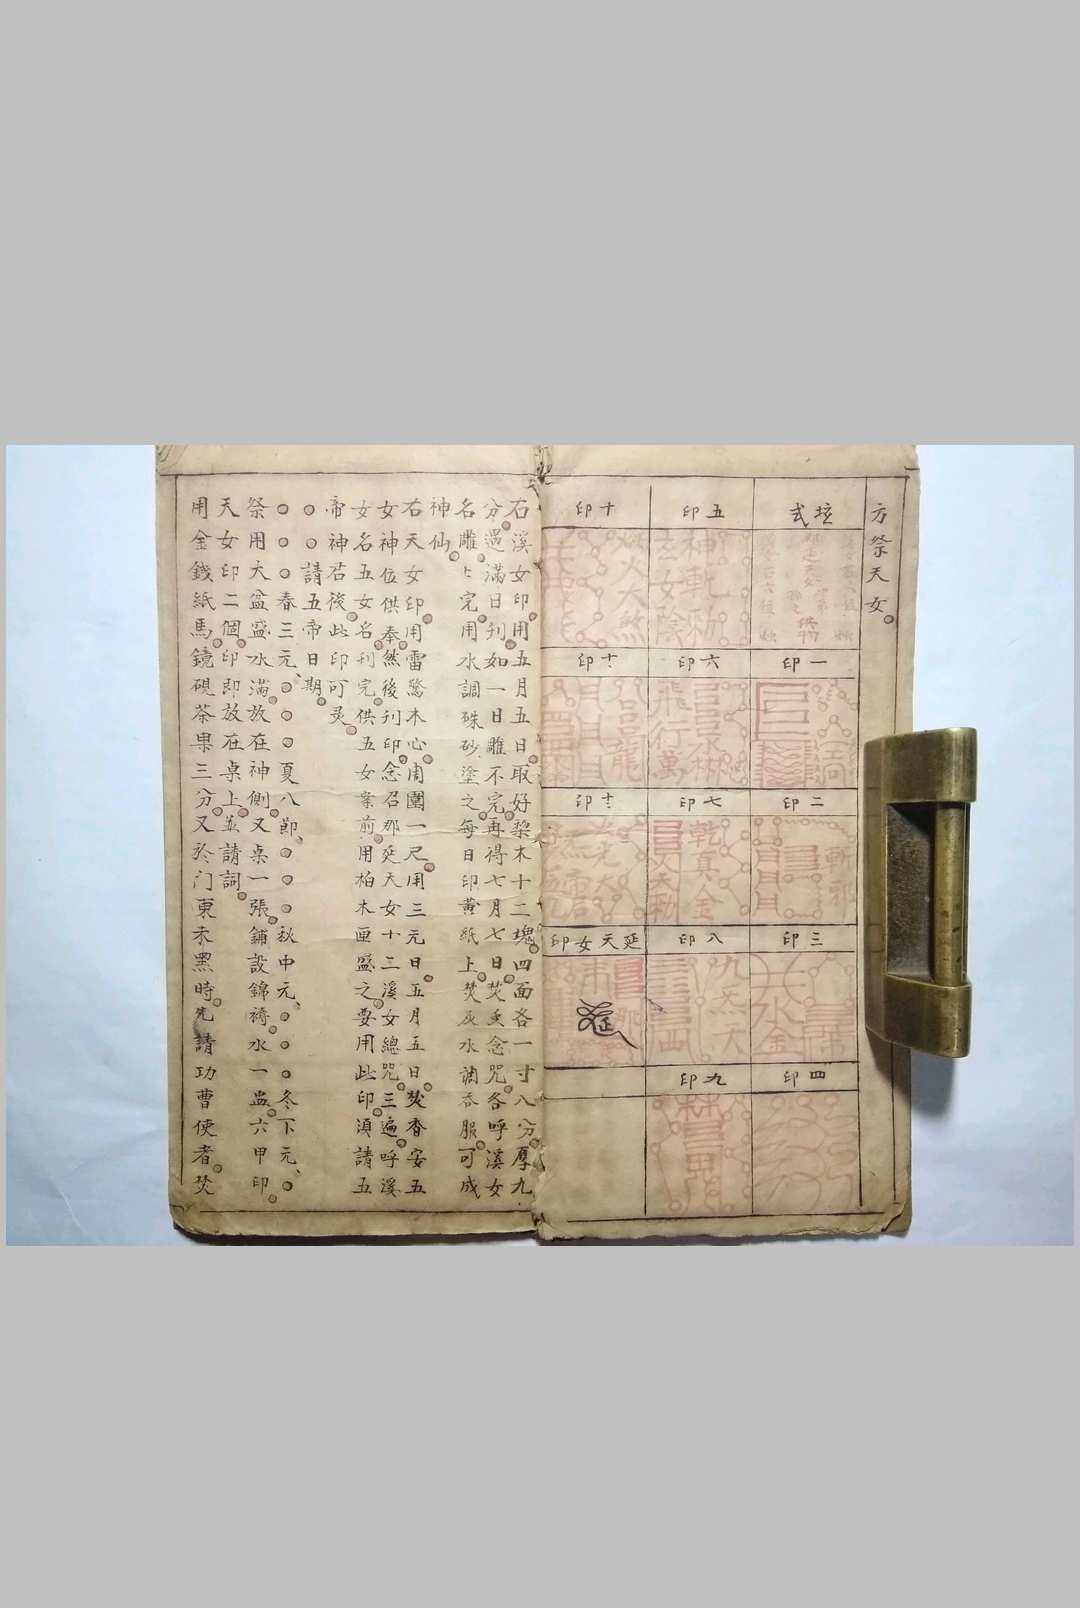 方祭天女
坛式
供物
一印
二印
三印
四印
五印
六印
七印
八印
九印
十印
十一印
十二印
延天女印
斬祁
水金
神斬
玄女陰
飛行萬
乾真金
火大煞
龍
右溪女印用五月五日取好棃木十二塊四面各一寸八分厚九
分遇滿日刊如一日雕不完再得七月七日焚香念咒各呼溪女
名雕上完用水調硃砂塗之每日印黃紙上焚灰水調吞服可成
神仙
右天女印用雷驚木心周圍一尺用三元日五月五日焚香安五
女神位供奉然後刊印念召那延天女十二溪女總咒三遍呼溪
女名五女名刊完供五女案前用柏木匣盛之要用此印須請五
帝神召後此印可灵
○○請五帝日期
○○○春三元、○○○夏八節、○○○秋中元、○○○冬下元、○
祭用大盆盛水滿放在神側又桌一張鋪設錦褥水一盅六甲印
天女印二個印即放在桌上並請詞
用金錢紙馬鏡硯茶果三分又於门東未黑時先請功曹使者焚